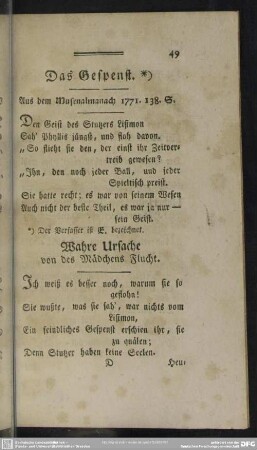 49
Das Gespenst. *)
Aus dem Musenalmanach 1771. 138. S.
Den Geist des Stutzers Lisimon
Sah' Phyllis jüngst, und floh davon.
„So flieht sie den, der einst ihr Zeitver-
treib gewesen?
„Ihn, den noch jeder Ball, und jeder
Spieltisch preist.
Sie hatte recht; es war von seinem Wesen
Auch nicht der beste Theil, es war ja nur —
sein Geist.
*) Der Verfasser ist E. bezeichnet.
Wahre Ursache
von des Mädchens Flucht.
Ich weiß es besser noch, warum sie so
geflohn!
Sie wußte, was sie sah', war nichts vom
Lisimon,
Ein feindliches Gespenst erschien ihr, sie
zu quälen;
Denn Stutzer haben keine Seelen.
D
Heu-